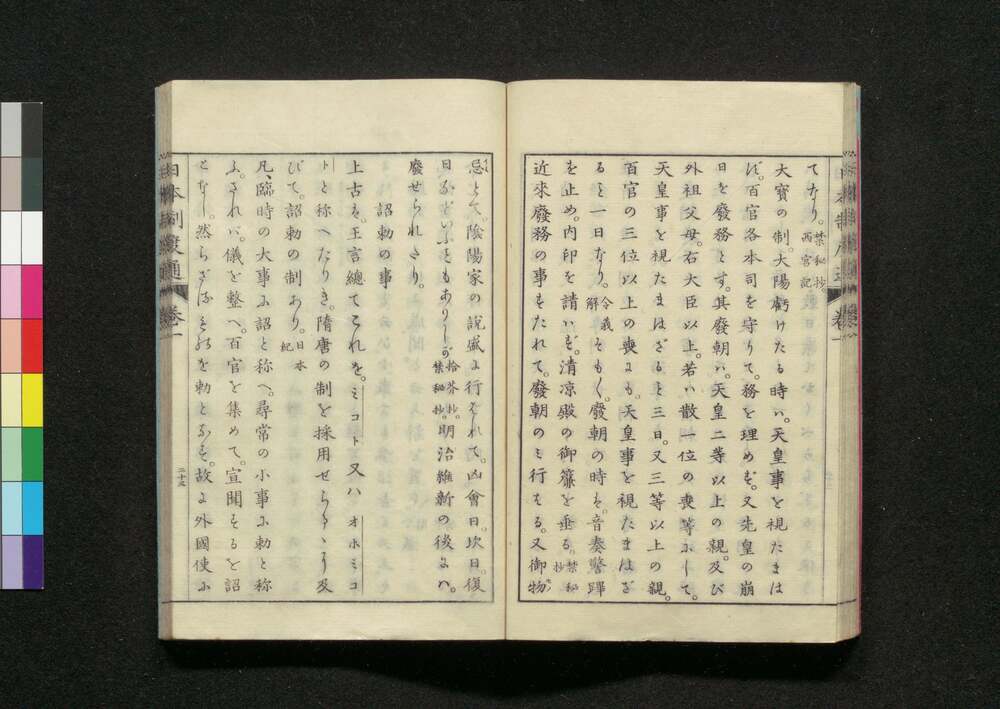 てなり。禁秘抄。西宮記
大寶の制。大陽虧けたる時ハ。天皇事を視たまは
ず。百官各本司を守りて。務を理めず。又先皇の崩
日を廢務とす。其廢朝ハ。天皇二等以上の親。及び
外祖父母。右大臣以上。若ハ散一位の喪等にして。
天皇事を視たまはざると三日。又三等以上の親。
百官の三位以上の喪にも。天皇事を視たまはざ
ると一日なり。令義解そもく廢朝の時も。音奏警蹕
を止め。内印を請ハず。清凉殿の御簾を垂る。禁秘抄
近來廢務の事もたれて。廢朝のミ行もる。又御物
忌とて。陰陽家の説盛に行はれて。凶會日。坎日。復
日などいふもありしが拾芥抄。禁秘抄。明治維新の後にハ。
廢せられたり。
詔勅の事
上古も。王言總てこれを。ミコト又ハオホミコ
トと称へたりき。隋唐の制を採用せらるゝに及
びて。詔勅の制あり。日本紀
凡、臨時の大事に詔と称へ。尋常の小事に勅と称
ふ。されハ。儀を整へ。百官を集めて。宣聞するを詔
となし。然らざるを勅となす。故に外國使に
日本制度通
卷一
二十五